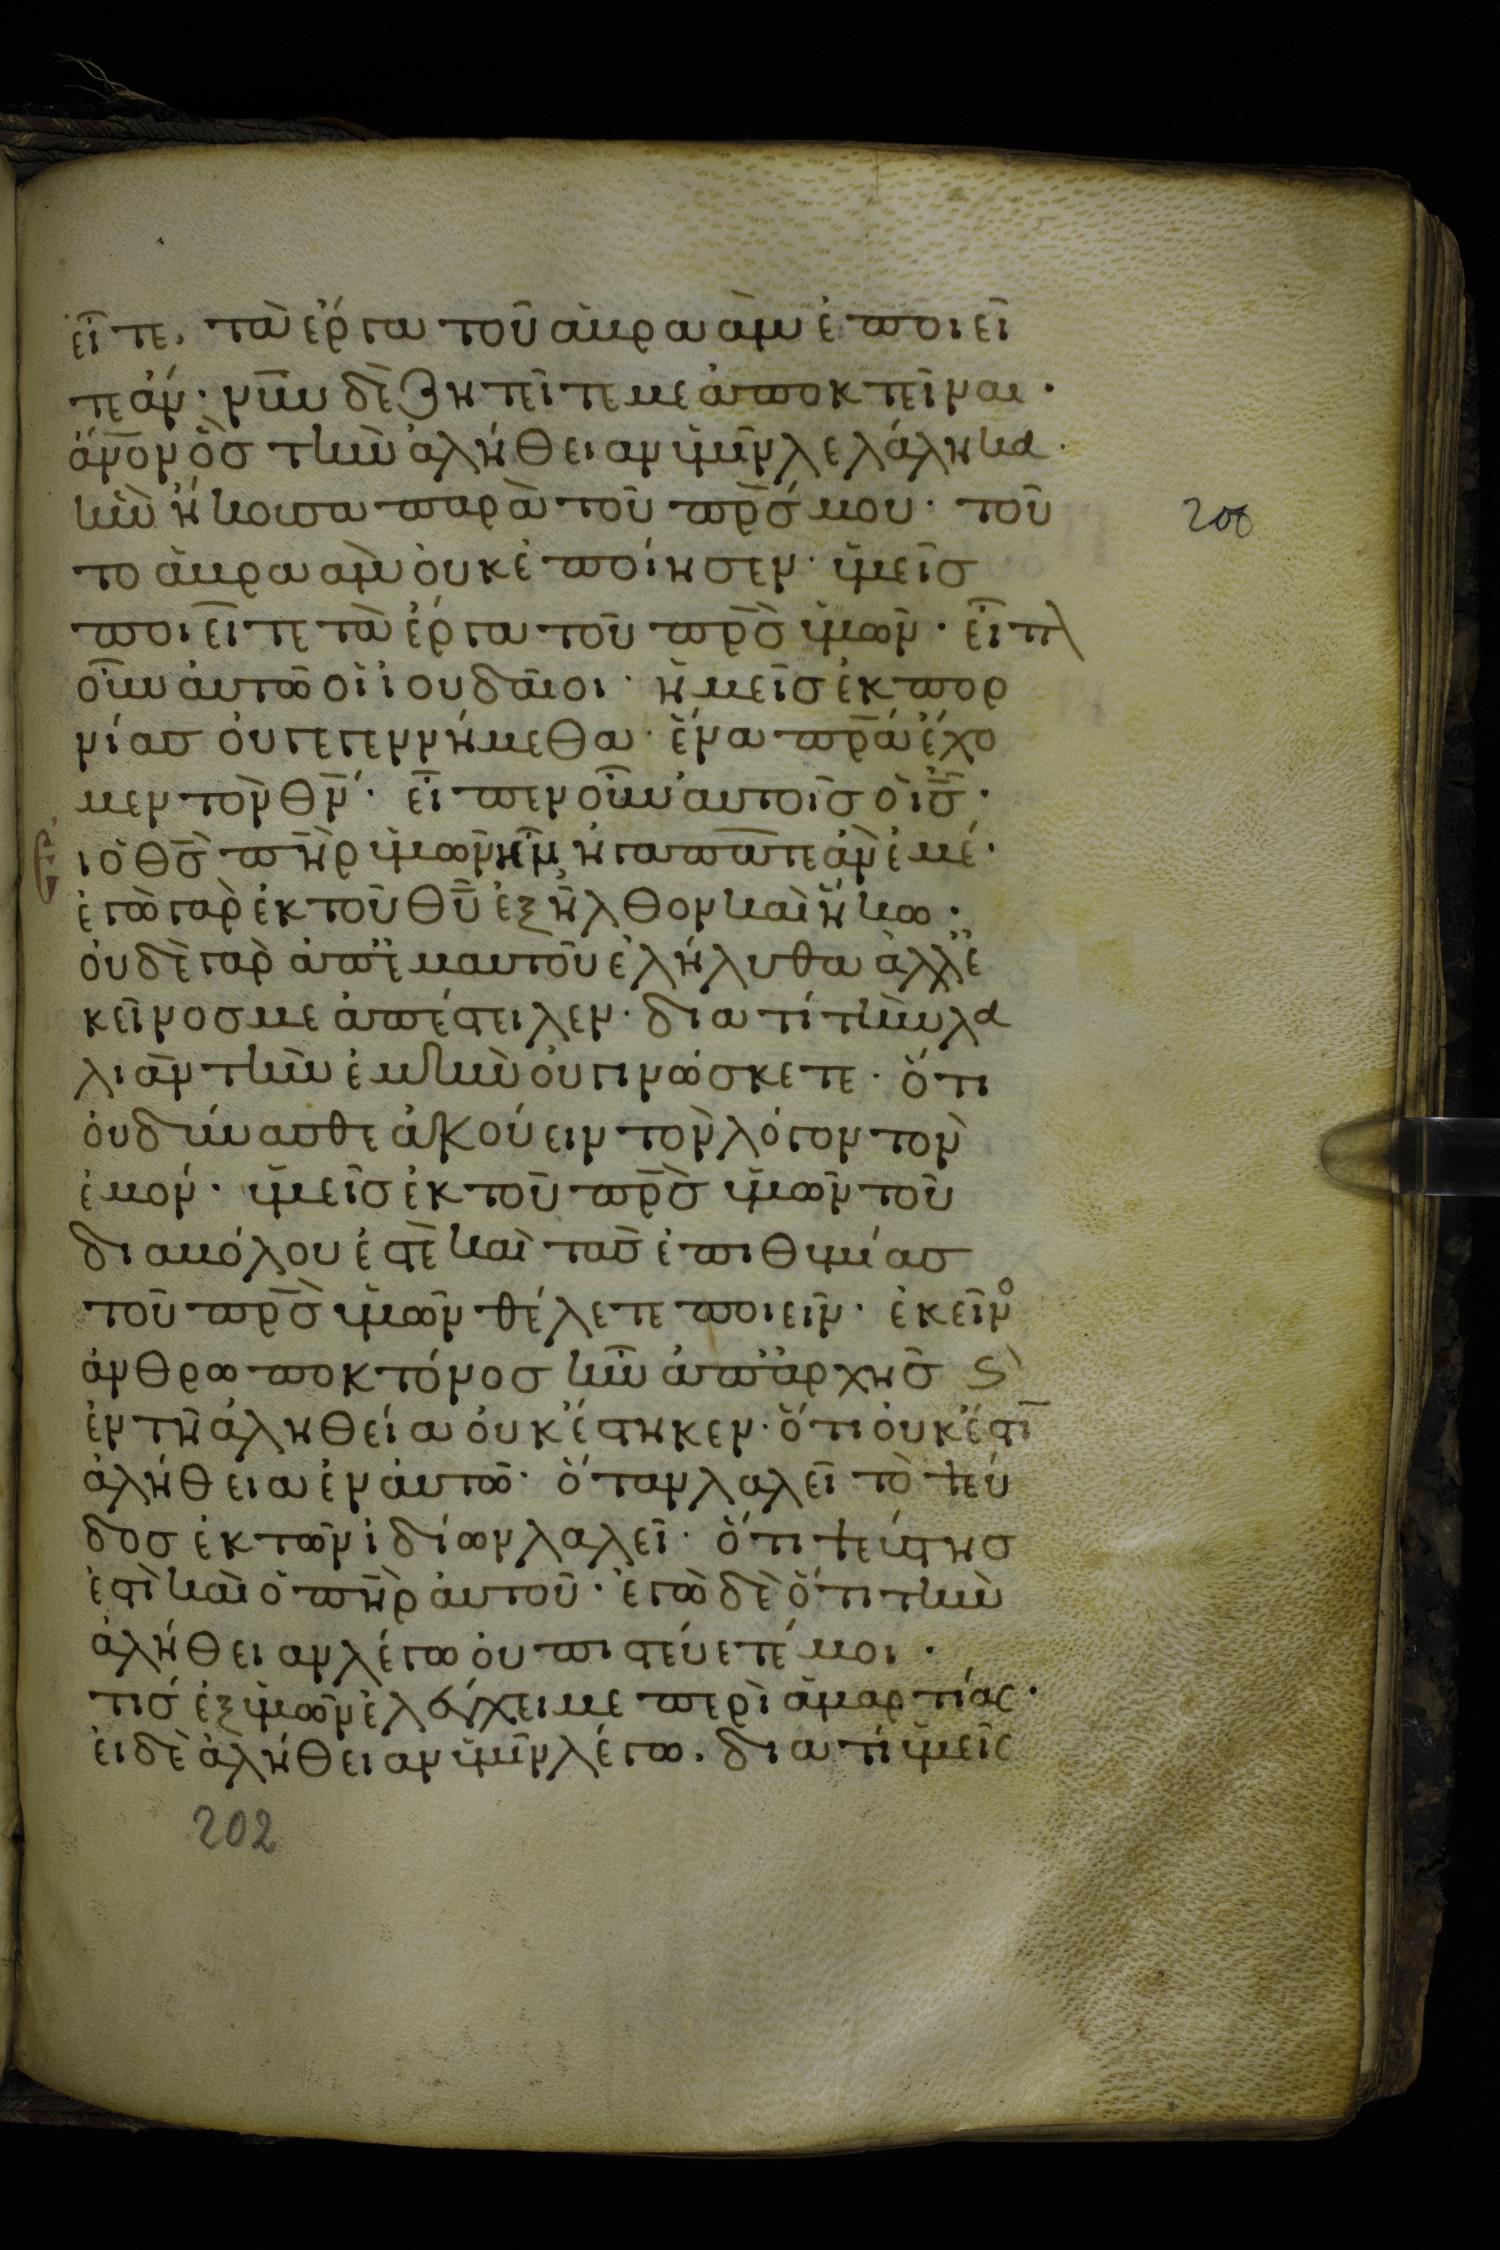 εἶτε, τὰ ἔργα τοῦ ἀβραὰμ ἐποιεῖ
τε ἄν· νῦν δὲ ζητεῖτέ με ἀποκτεῖναι·
ἄνον ὃς τὴν ἀλήθειαν ὑμῖν λελάληκα·
ἣν ἤκουσα παρὰ τοῦ πρς μου· τοῦ
το ἀβραὰμ οὐκ ἐποίησεν· ὑμεῖς
ποιεῖτε τὰ ἔργα τοῦ πρς ὑμῶν· εἶπ
οὖν αὐτῶ οἱ ἰουδαῖοι· ἡμεῖς ἐκ πορ
νίας οὐ γεγεννήμεθα· ἕνα πρα ἔχο
μεν τὸν θν· εἶπεν οὖν αὐτοῖς ὁ ις·
Ε ι ὁ θς πηρ ὑμῶν ἦν, ἠγαπᾶτε ἂν ἐμέ·
ἐγὼ γὰρ ἐκ τοῦ θυ ἐξῆλθον καὶ ἥκω·
οὐδὲ γὰρ ἀπ' ἐμαυτοῦ ἐλήλυθα ἀλλ' ἐ
κεῖνός με ἀπέστειλεν· διατί τὴν λα
λιὰν τὴν ἐμὴν οὐ γινώσκετε· ὅτι
οὐ δύνασθε ἀκούειν τὸν λόγον τὸν
ἐμόν· ὑμεῖς ἐκ τοῦ πρς ὑμῶν τοῦ
διαβόλου ἐστὲ καὶ τὰς ἐπιθυμίας
τοῦ πρς ὑμῶν θέλετε ποιεῖν· ἐκεῖνο
ἀνθρωποκτόνος ἦν ἀπ' ἀρχῆς ϗ
ἐν τῆ ἀληθεία οὐκ ἕστηκεν· ὅτι οὐκ ἔστι
ἀλήθεια ἐν αὐτῶ· ὅταν λαλεῖ τὸ ψεύ
δος ἐκ τῶν ἰδίων λαλεῖ· ὅτι ψεύστης
ἐστὶ καὶ ὁ πηρ αὐτοῦ· ἐγὼ δὲ ὅτι τὴν
ἀλήθειαν λέγω οὐ πιστεύετέ μοι·
τίς ἐξ ὑμῶν ἐλέγχει με περὶ ἁμαρτίας·
εἰ δὲ ἀλήθειαν ὑμῖν λέγω. διατί ὑμεῖς
202